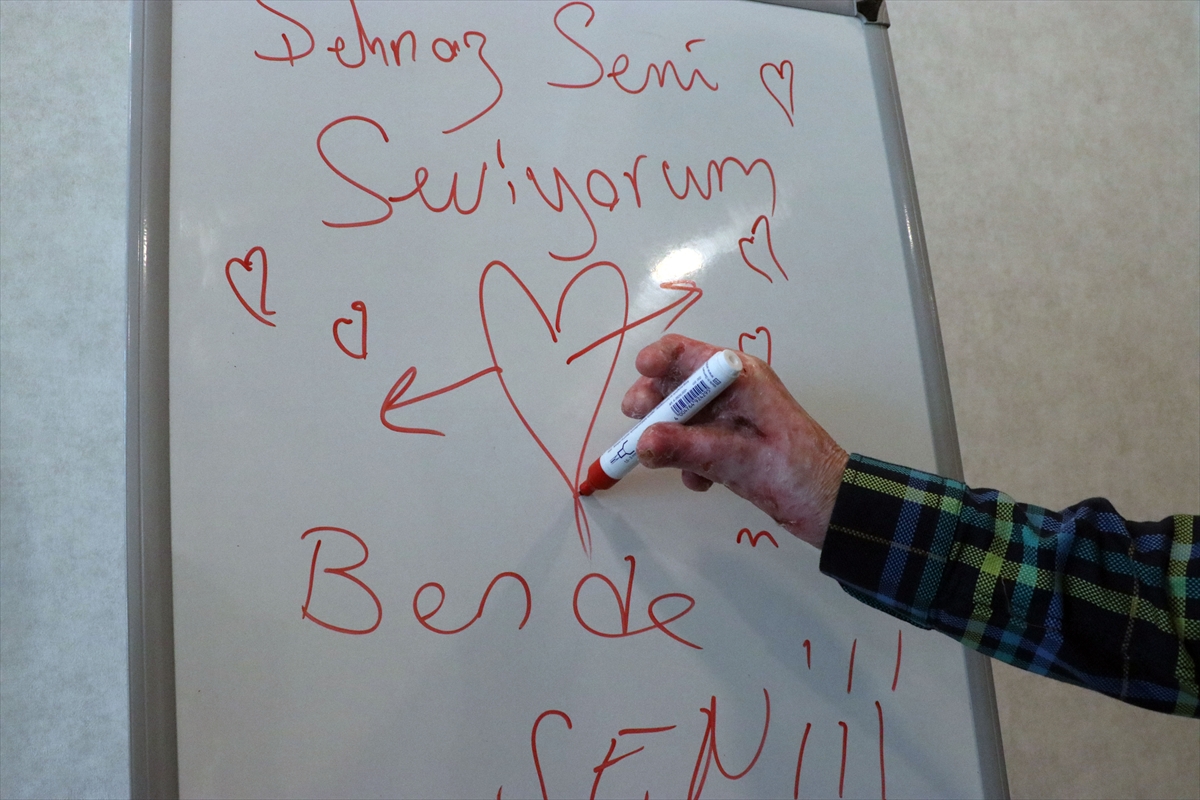 Dehnaz Seni
Seviyorum
Bende
SENİİİ